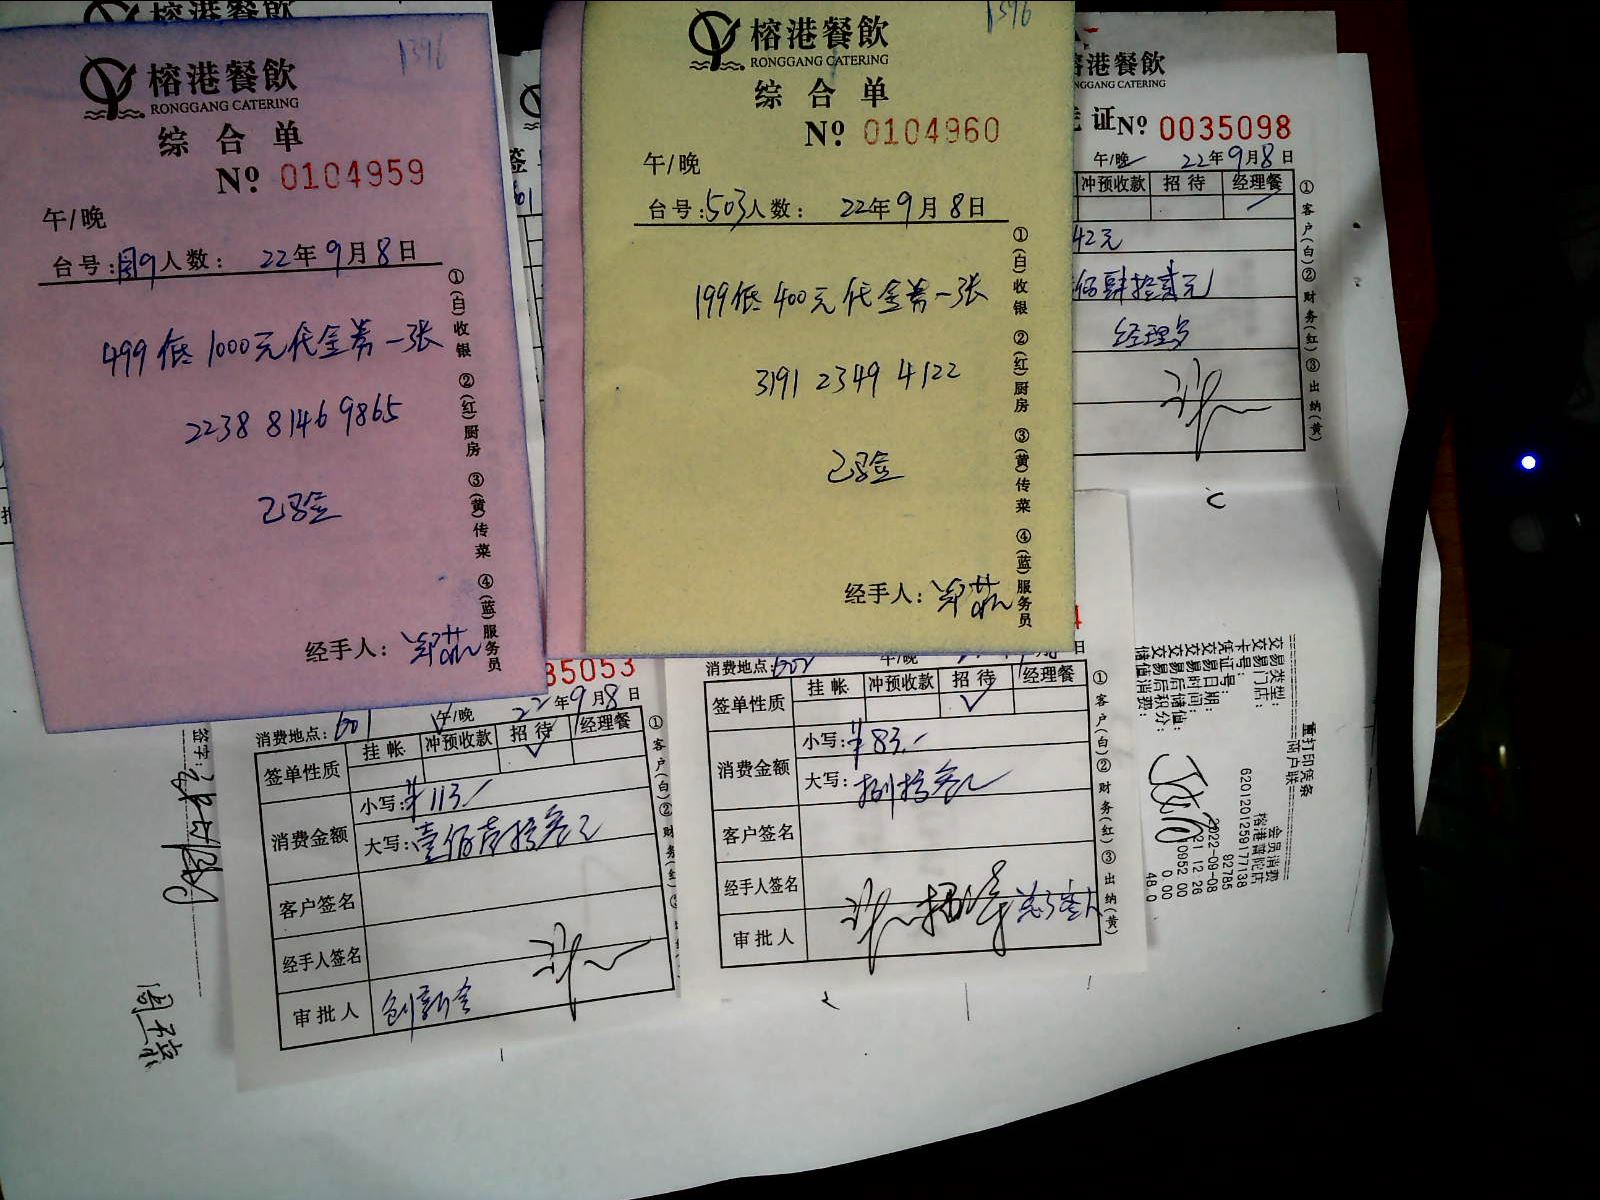 1396
榕港餐飲
RONGGANG CATERING
综合单
Nº 0104959
午/晚
台号: 人数: 22年9月8日
499抵1000元代金券一张
2238 8146 9865
已验
经手人:
①(白)收银 ②(红)厨房 ③(黄)传菜 ④(蓝)服务员
1396
榕港餐飲
RONGGANG CATERING
综合单
Nº 0104960
午/晚
台号:503人数: 22年9月8日
199抵400元代金券一张
3191 2349 4122
已验
经手人:
①(白)收银 ②(红)厨房 ③(黄)传菜 ④(蓝)服务员
港餐飲
NGGANG CATERING
证Nº 0035098
午/晚 22年9月8日
冲预收款 招待 经理餐
42元
佰肆拾贰元
①客户(白)②财务(红)③出纳(黄)
35053
消费地点:601 午/晚 22年9月8日
签单性质 挂帐 冲预收款 招待 经理餐
消费金额 小写:¥113.-
大写:壹佰壹拾叁元
客户签名
经手人签名
审批人
①客户(白)②财务(红)
消费地点:602 午/晚
签单性质 挂帐 冲预收款 招待 经理餐
消费金额 小写:¥83.-
大写:捌拾叁元
客户签名
经手人签名
审批人
①客户(白)②财务(红)③出纳(黄)
重打印凭条
商户联
交易类型: 会员消费
交易门店: 榕港普陀店
卡号: 6201201259177138
凭证号: 92785
交易日期: 2022-09-08
交易时间: 21:12:26
交易后储值: 10952.00
交易后积分: 0.00
储值消费: 48.0
签字: